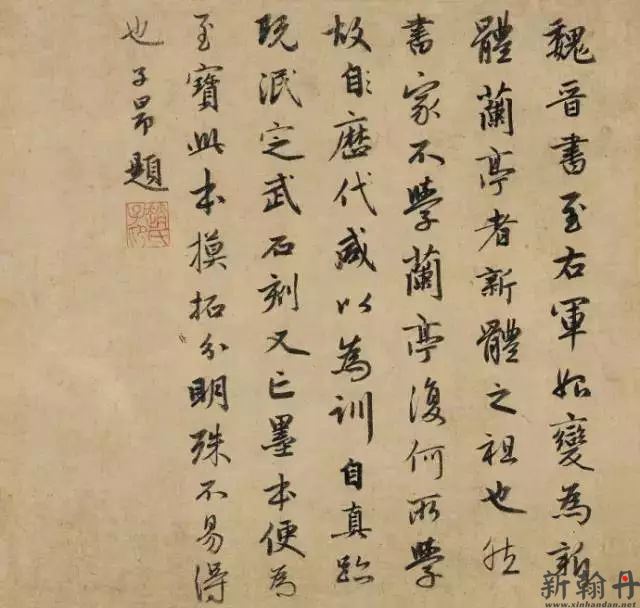 魏晋書至右軍始變為新
體蘭亭者新體之祖也然
書家不學蘭亭復何所學
故自歷代咸以為訓自真跡
既泯定武石刻又亡墨本便為
至寶此本摸拓分明殊不易得
也子昂題
趙氏子昂
新翰丹
www.xinhandan.net